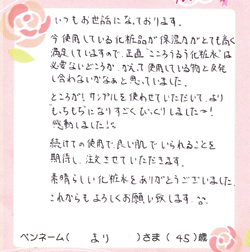 いつもお世話になっております。
今使用している化粧品が保湿力がとても高く
満足していますので、正直"こころうるう化粧水"は
必要ないどころか、かえって使用している物と反発
し合わないかなぁと思っていました。
ところが!サンプルを使わせていただいて、より
"もっちもち"になりすごくびっくりしましたー!
感動しました!!
続けての使用で良い肌でいられることを
期待し、注文させていただきます。
素晴らしい化粧水をありがとうございました。
これからもよろしくお願い致します。
ペンネーム( より )さま(45)歳